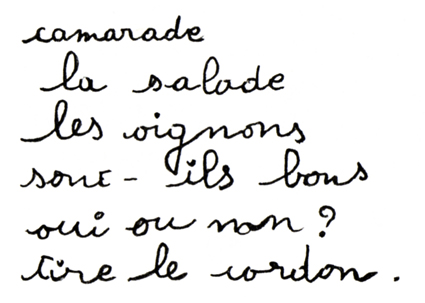 camarade
la salade
les oignons
sont-ils bons
oui ou non ?
tire le cordon.